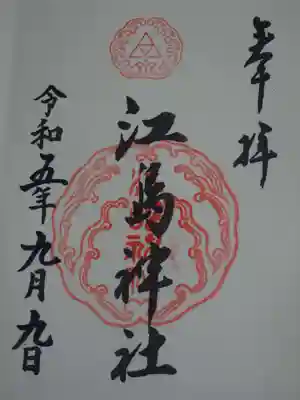 奉拝
江島神社
令和五年九月九日